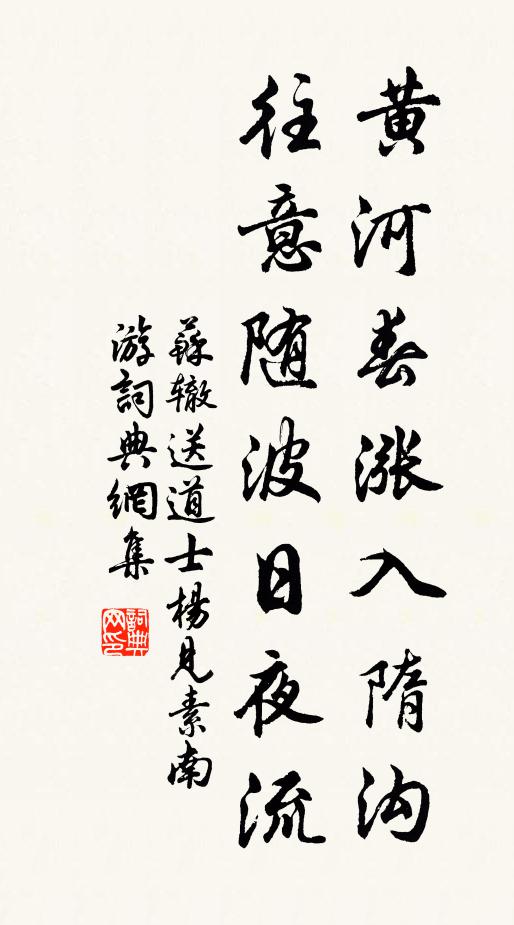 黄河春漲入隋沟
往意随波日夜流
蘇辙送道士楊見素南
游詞典網集
詞典网印